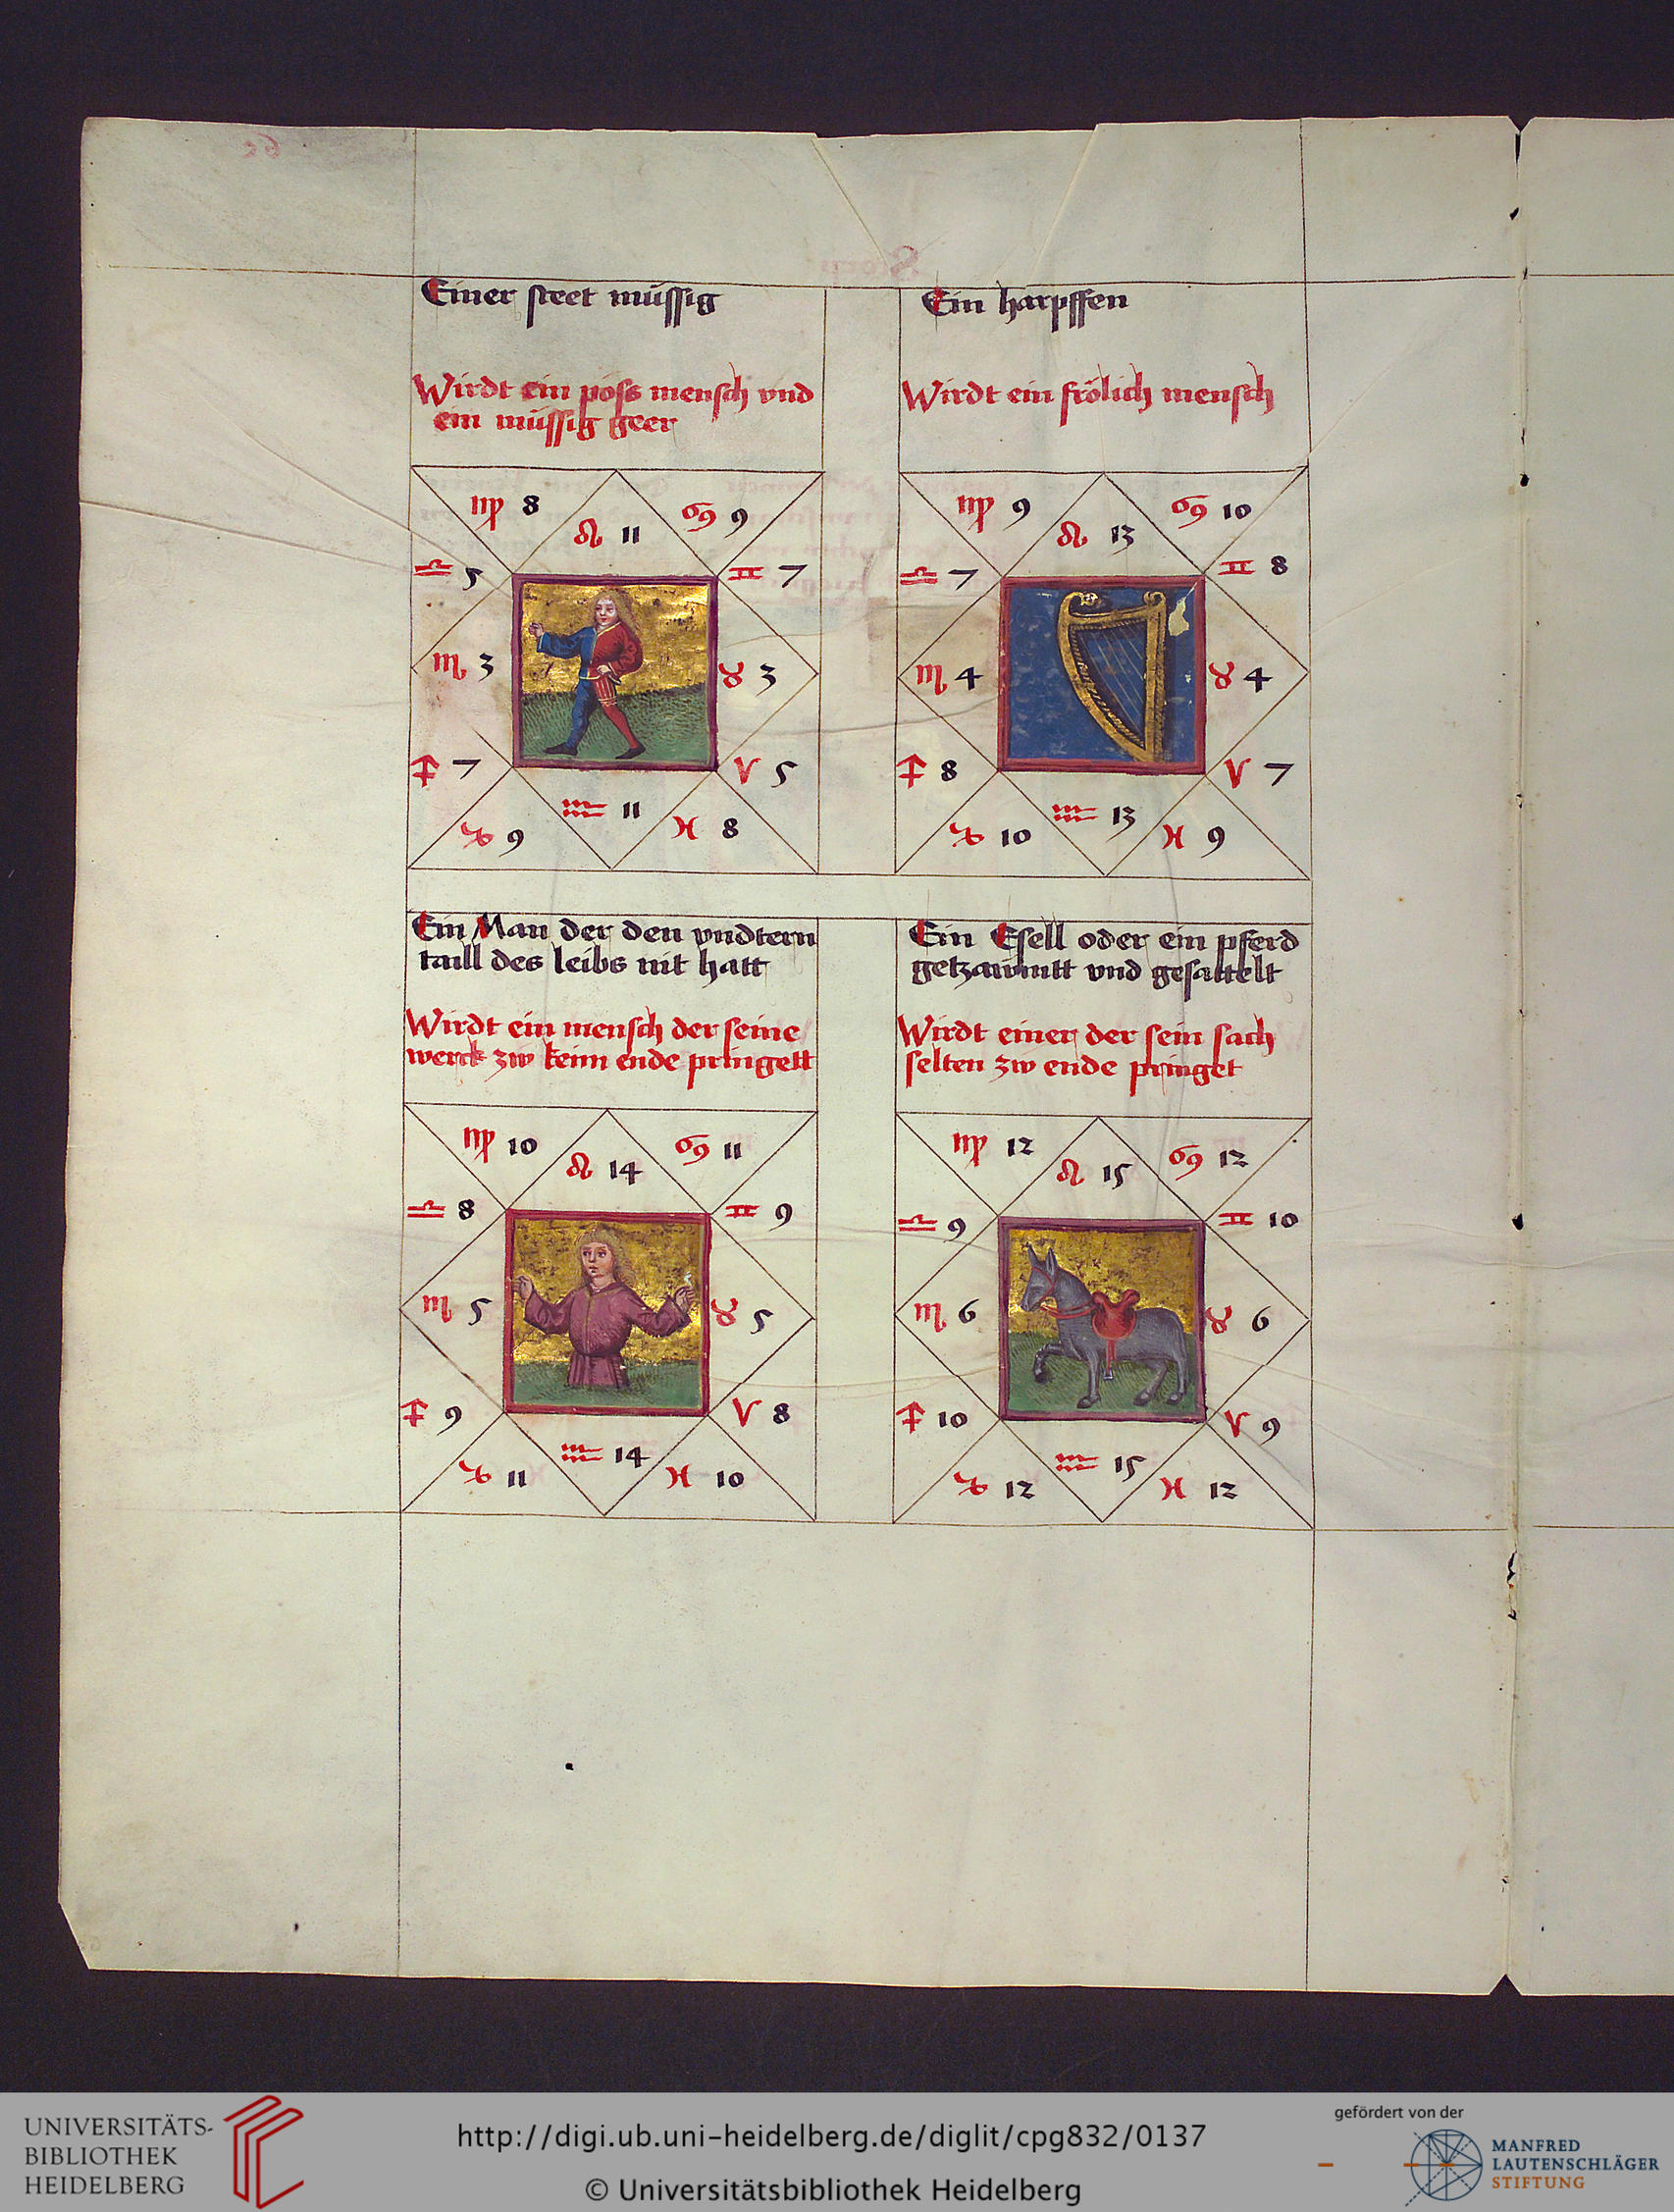 Einer steet müssig
Wirdt ein pöss mensch vnd
ein müssig geer
♍ 8
♌ 11
♋ 9
♎ 5
♊ 7
♏ 3
♉ 3
♐ 7
♈ 5
♑ 9
♒ 11
♓ 8
Ein harpffen
Wirdt ein frölich mensch
♍ 9
♌ 13
♋ 10
♎ 7
♊ 8
♏ 4
♉ 4
♐ 8
♈ 7
♑ 10
♒ 13
♓ 9
Ein Man der den vndtern
taill des leibs nit hatt
Wirdt ein mensch der seine
werck zw keim ende pringett
♍ 10
♌ 14
♋ 11
♎ 8
♊ 9
♏ 5
♉ 5
♐ 9
♈ 8
♑ 11
♒ 14
♓ 10
Ein Esell oder ein pferd
getzaumtt vnd gesattelt
Wirdt einer der sein sach
selten zw ende pringet
♍ 12
♌ 15
♋ 12
♎ 9
♊ 10
♏ 6
♉ 6
♐ 10
♈ 9
♑ 12
♒ 15
♓ 12
UNIVERSITÄTS-
BIBLIOTHEK
HEIDELBERG
http://digi.ub.uni-heidelberg.de/diglit/cpg832/0137
© Universitätsbibliothek Heidelberg
gefördert von der
MANFRED
LAUTENSCHLÄGER
STIFTUNG